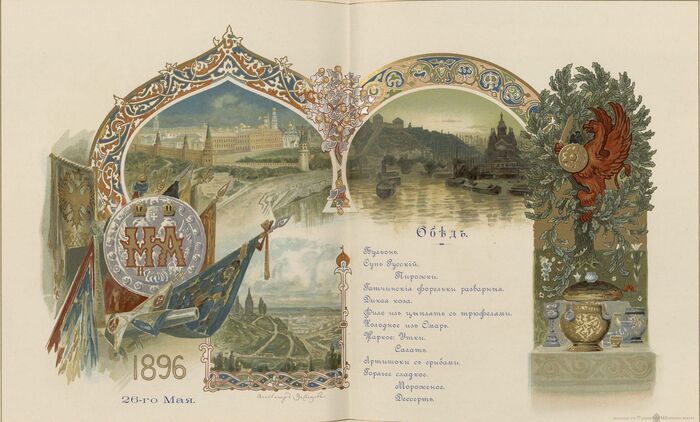 НА
1896
26-го Мая.
Обѣдъ.
Бульонъ.
Супъ Русскій.
Пирожки.
Гатчинскія форельки разварныя.
Дикая коза.
Филе изъ цыплятъ съ трюфелями.
Холодное изъ Омаръ.
Жаркое Утки.
Салатъ.
Артишоки съ грибами.
Горячее сладкое.
Мороженое.
Дессертъ.